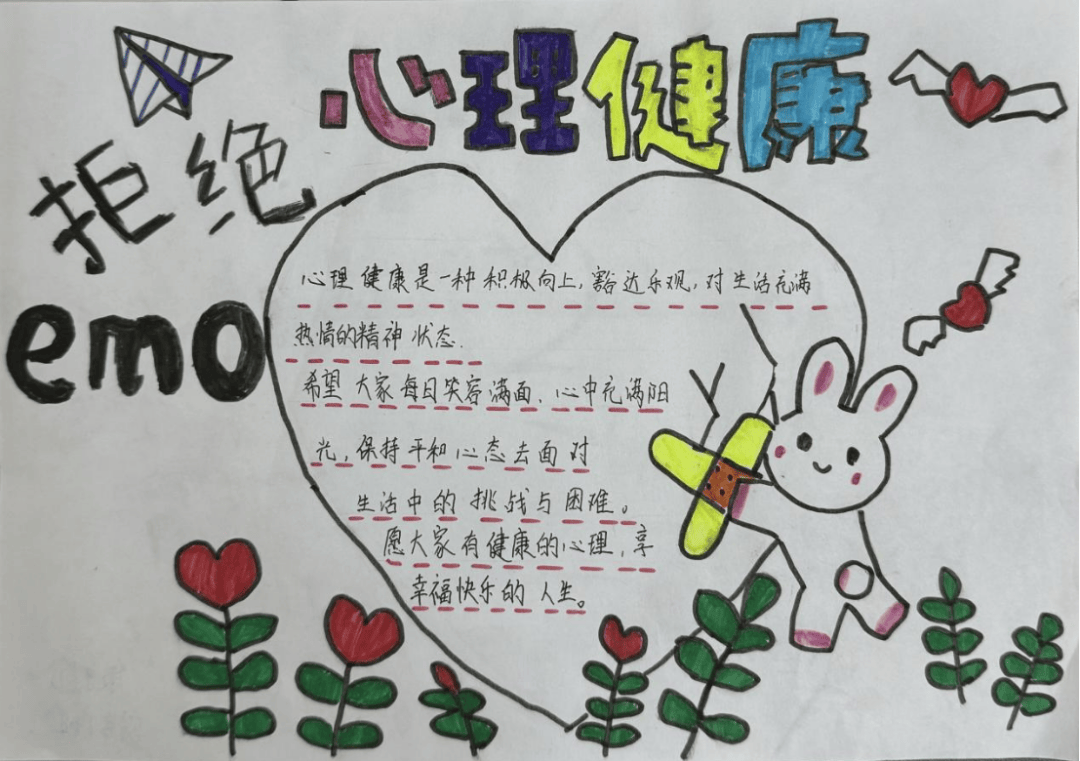 心理健康
拒绝
emo
心理健康是一种积极向上,豁达乐观,对生活充满
热情的精神状态.
希望大家每日笑容满面、心中充满阳
光,保持平和心态去面对
生活中的挑战与困难。
愿大家有健康的心理,享
幸福快乐的人生。